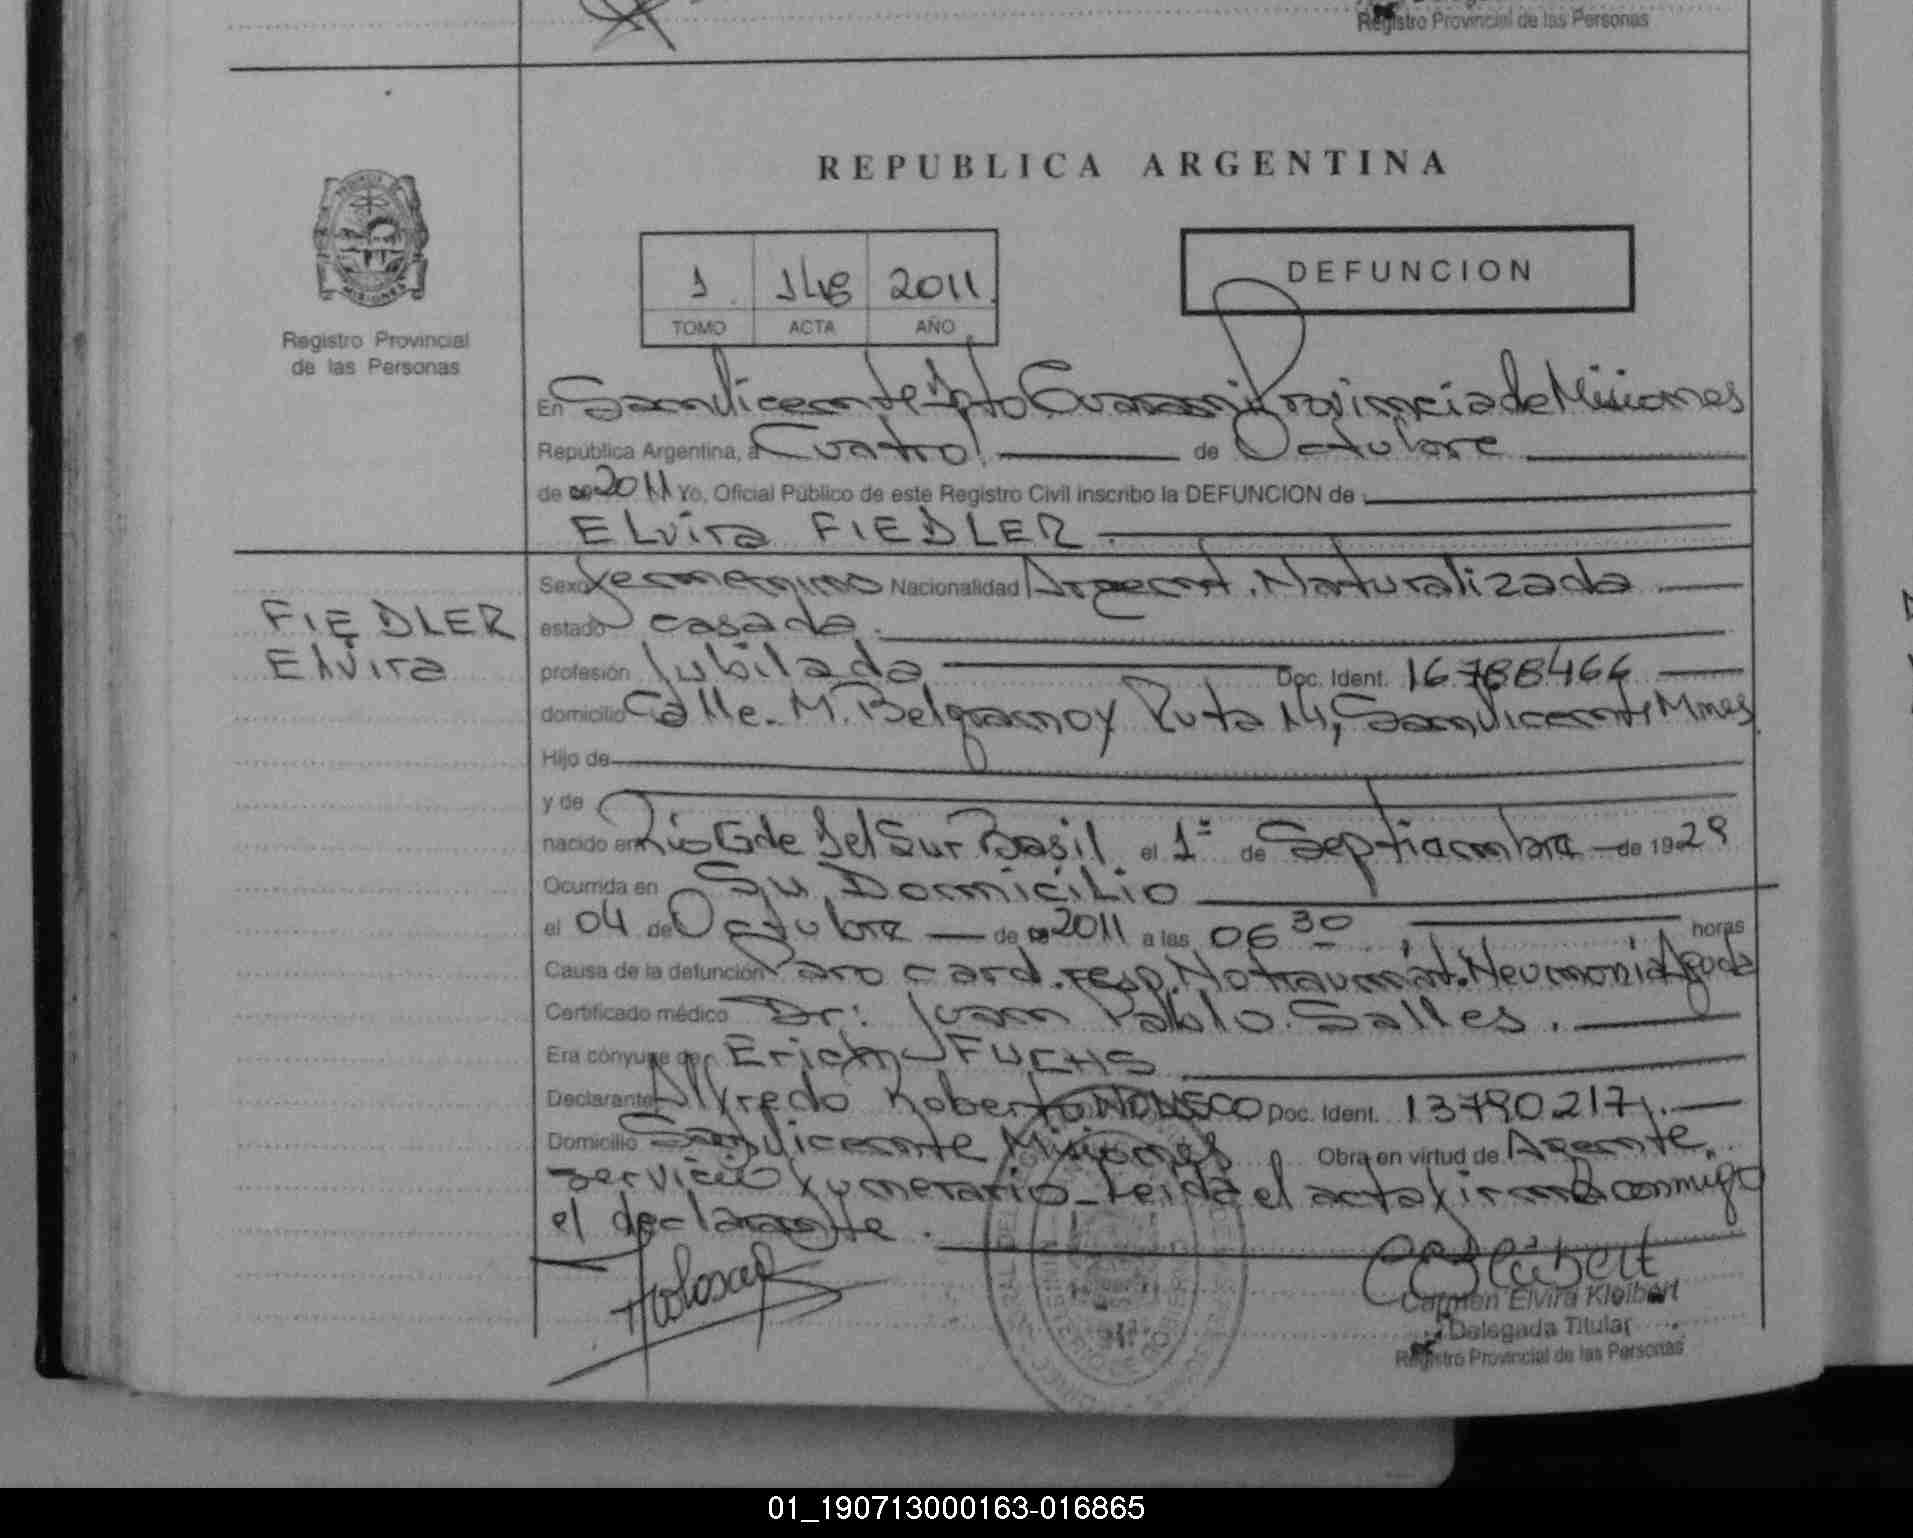 Registro Provincial de las Personas
REPUBLICA ARGENTINA
PROVINCIA DE
MISIONES
Registro Provincial
de las Personas
1 148 2011
TOMO ACTA AÑO
DEFUNCION
En San Vicente Dpto Guarani Provincia de Misiones
República Argentina, a Cuatro de Octubre
de 2011 Yo, Oficial Público de este Registro Civil inscribo la DEFUNCION de :
Elvira FIEDLER
FIEDLER
Elvira
Sexo femenino Nacionalidad Argent. Naturalizada
estado casada
profesión Jubilada Doc. Ident. 16788466
domicilio Calle M. Belgrano y Ruta 14, San Vicente, Mnes
Hijo de
y de
nacido en Río Gde del Sur Basil el 1º de Septiembre de 1929
Ocurrida en Su Domicilio
el 04 de Octubre de 2011 a las 06 30 horas
Causa de la defunción Paro card. resp. No traumát. Neumonia Aguda
Certificado médico Dr: Juan Pablo Salles.
Era cónyuge de Erich FUCHS
Declarante Alfredo Roberto Doc. Ident. 13790217
Domicilio San Vicente Misiones Obra en virtud de Agente
servicio fumerario - Leida el acta firma conmigo
el declarante.
Carmen Elvira Kleibert
Delegada Titular
Registro Provincial de las Personas
01_190713000163-016865